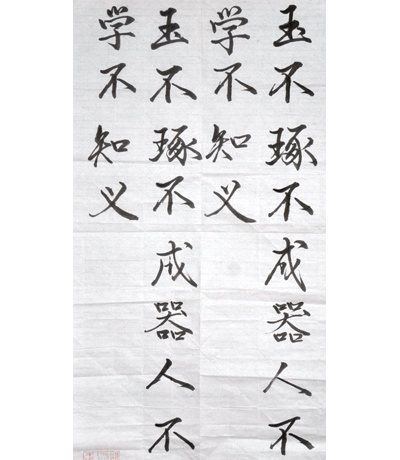 玉不琢不成器人不
学不知义
玉不琢不成器人不
学不知义